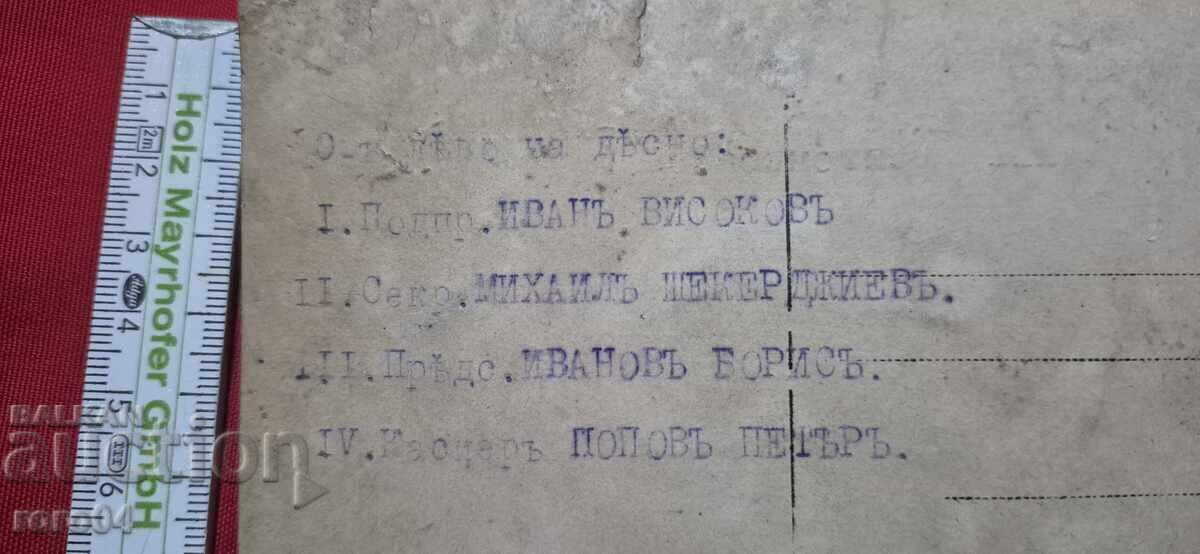 От лѣво на дѣсно:
I. Подпр. ИВАНЪ ВИСОКОВЪ
II. Секр. МИХАИЛЪ ШЕКЕРДЖИЕВЪ.
III. Прѣдс. ИВАНОВЪ БОРИСЪ.
IV. Касиеръ ПОПОВЪ ПЕТЪРЪ.
Holz Mayrhofer GmbH
1 2 3 4 5 6
2m
III
BALKAN
auction
roro04